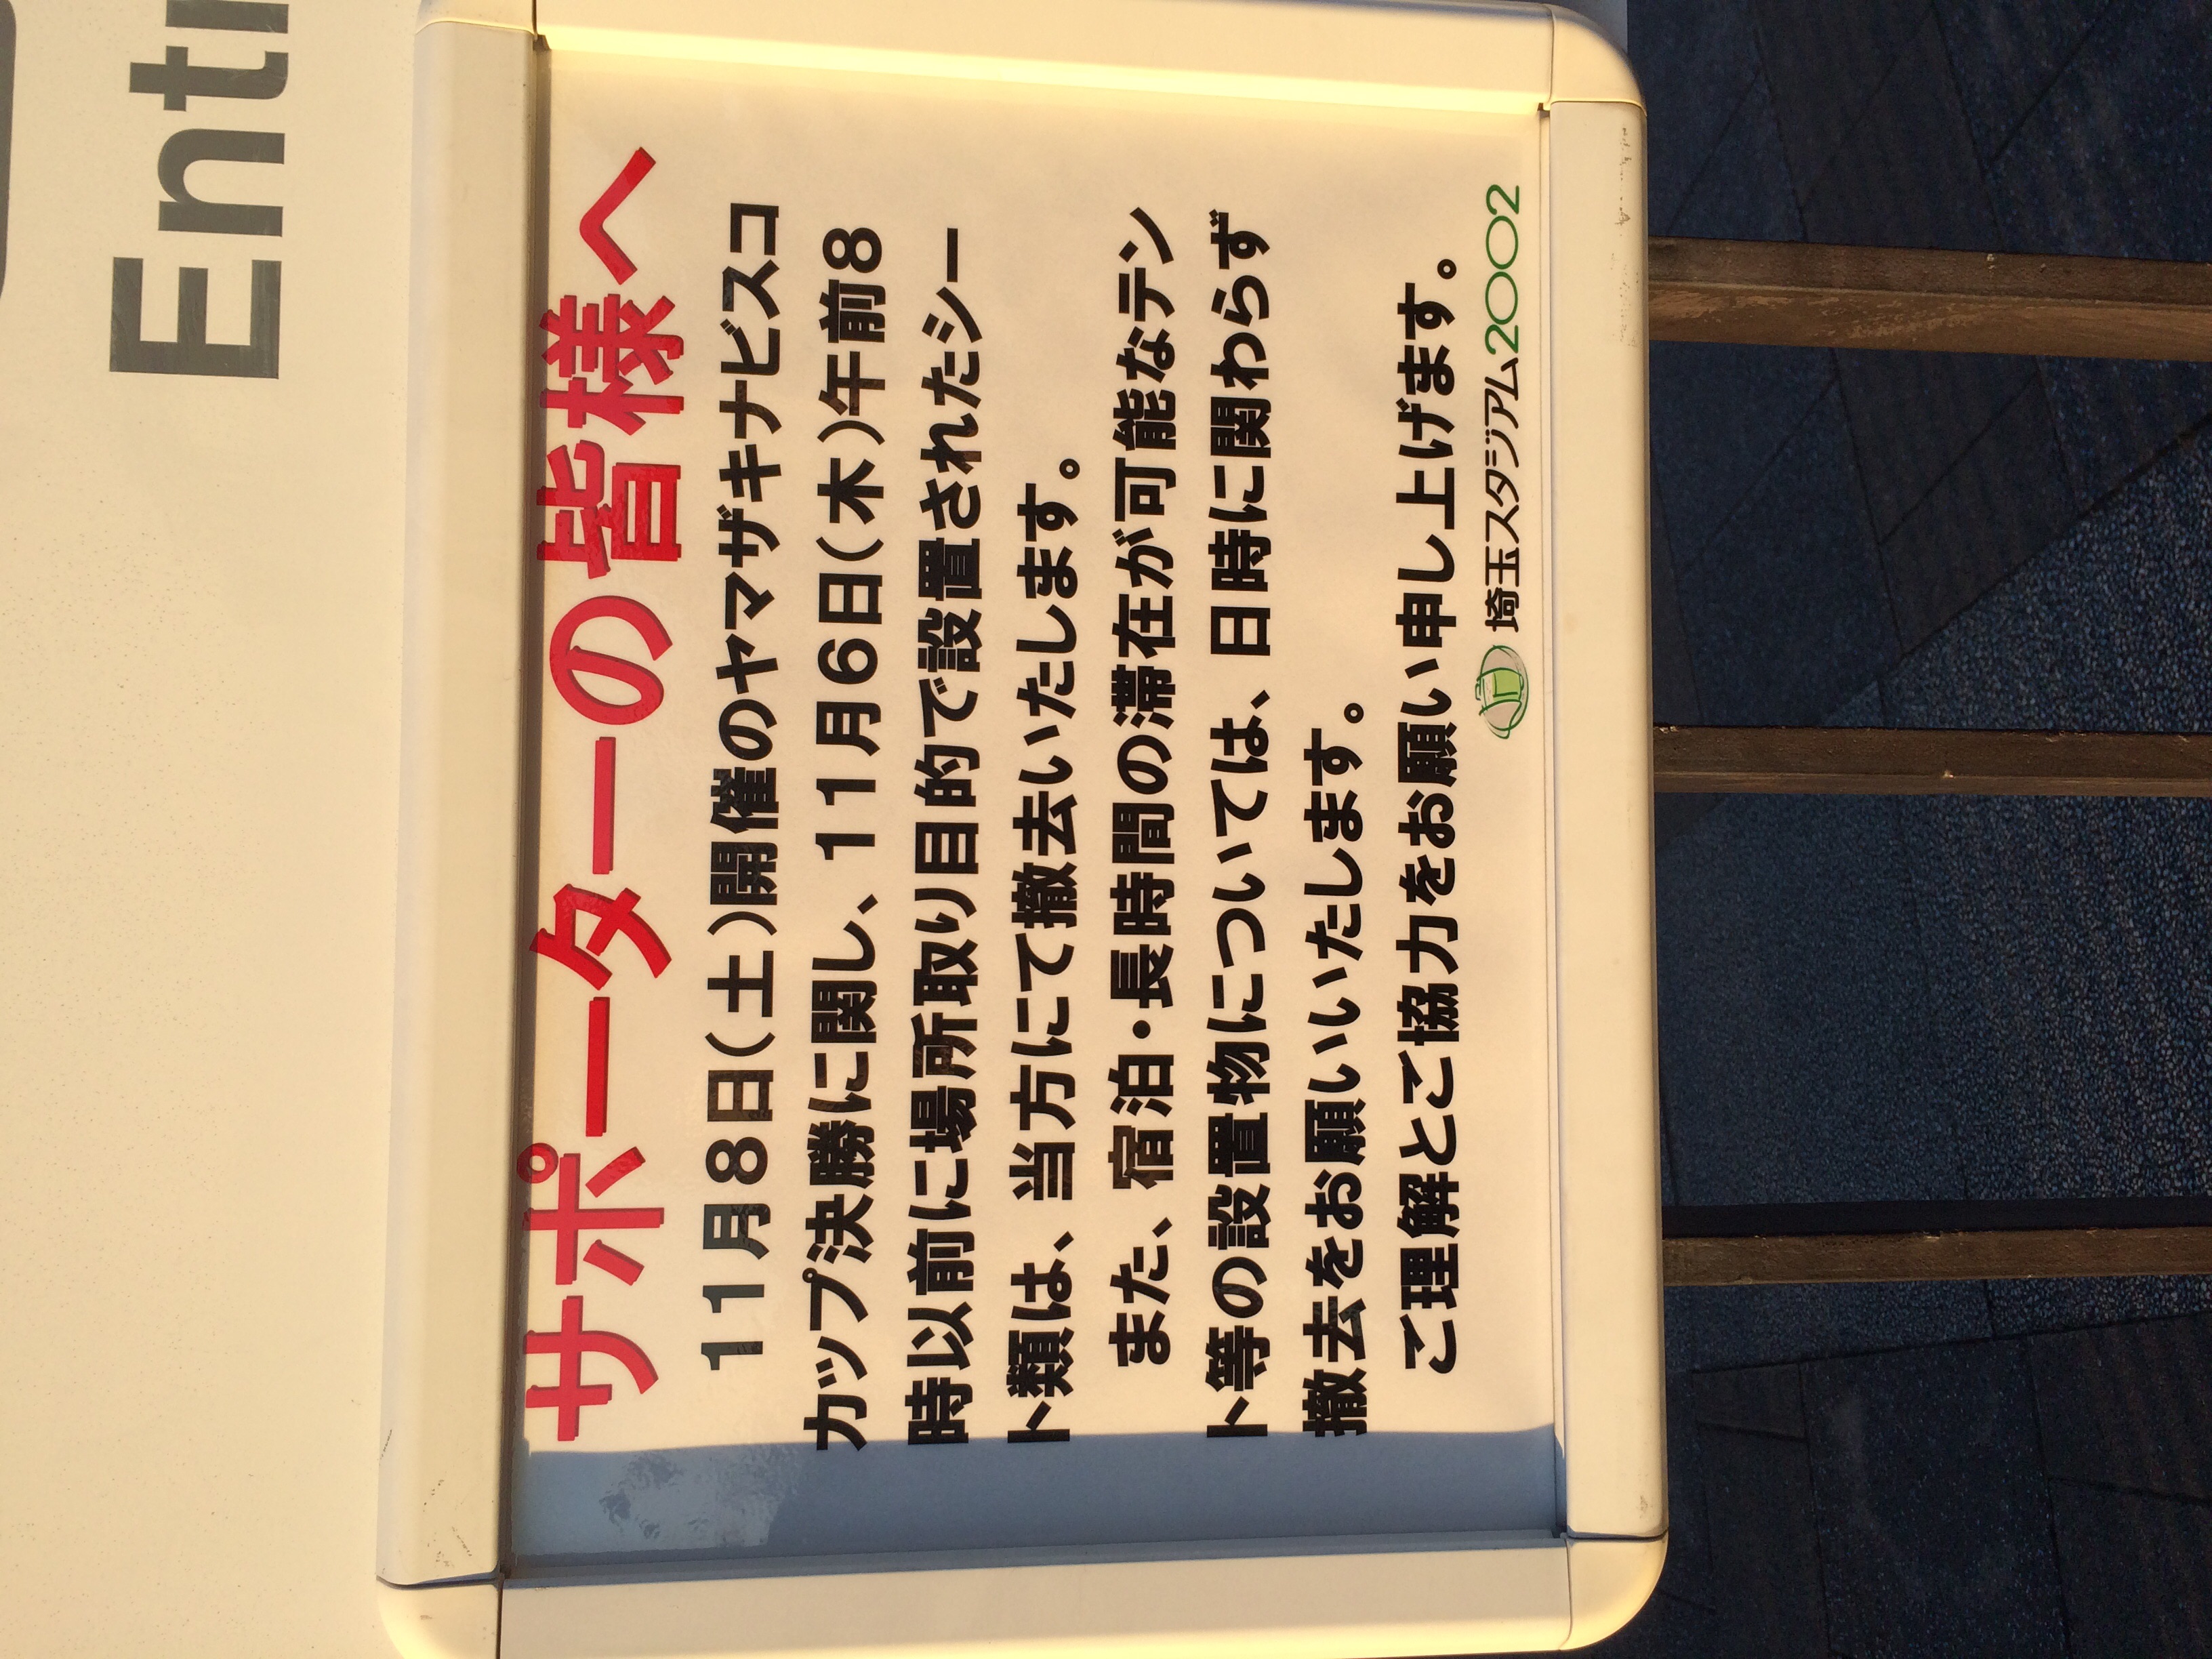 Ent
サポーターの皆様へ
11月8日(土)開催のヤマザキナビスコ
カップ決勝に関し、11月6日(木)午前8
時以前に場所取り目的で設置されたシー
ト類は、当方にて撤去いたします。
また、宿泊・長時間の滞在が可能なテン
ト等の設置物については、日時に関わらず
撤去をお願いいいたします。
ご理解とご協力をお願い申し上げます。
埼玉スタジアム2002